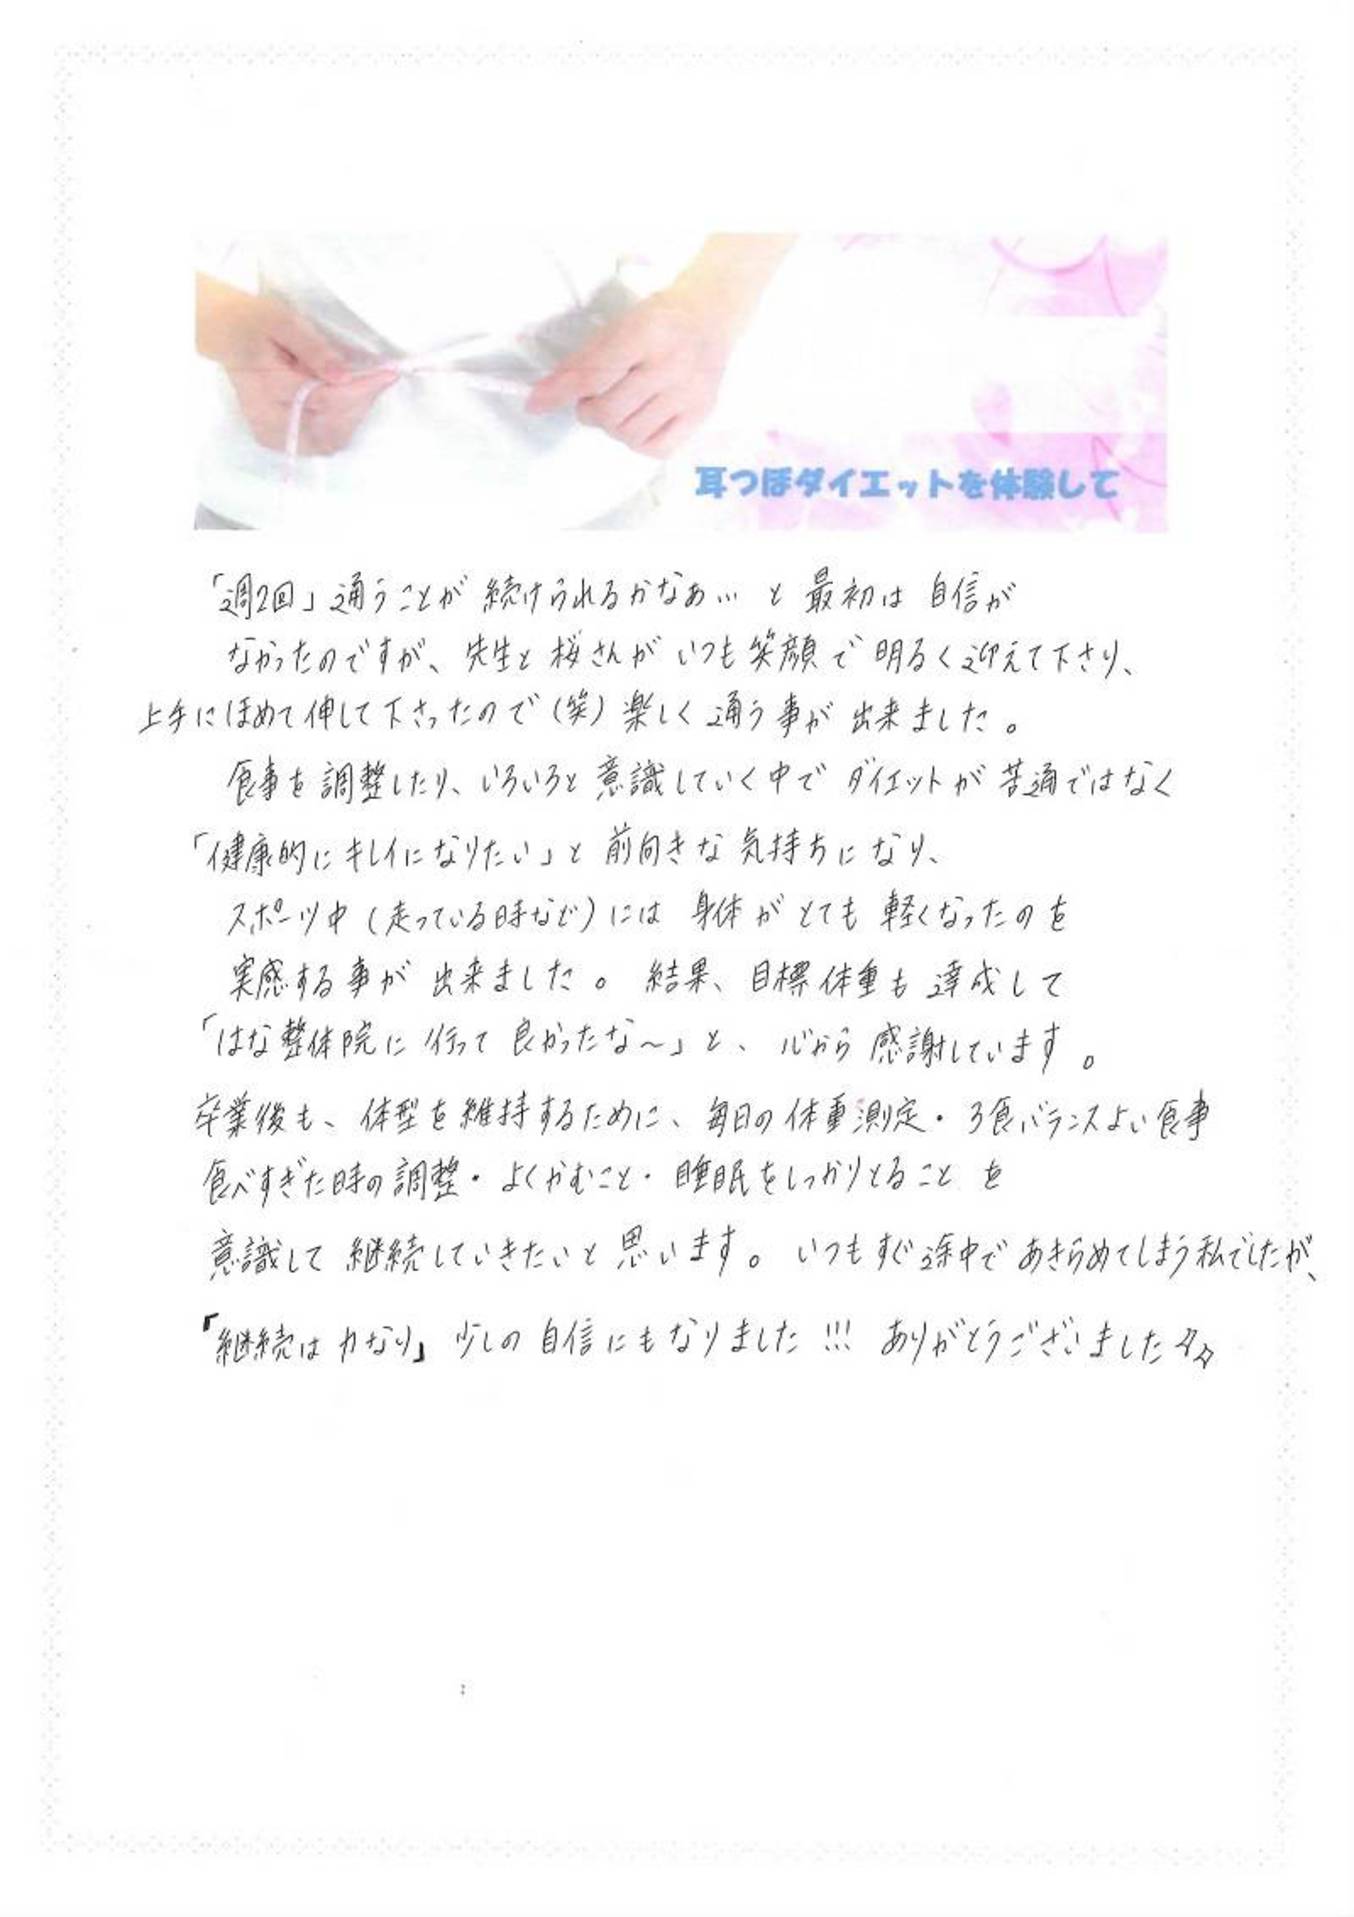 耳つぼダイエットを体験して
「週2回」通うことが続けられるかなぁ… と最初は自信が
なかったのですが、先生と桜さんがいつも笑顔で明るく迎えて下さり、
上手にほめて伸して下さったので(笑)楽しく通う事が出来ました。
食事を調整したり、いろいろと意識していく中でダイエットが苦通ではなく
「健康的にキレイになりたい」と前向きな気持ちになり、
スポーツ中(走っている時など)には身体がとても軽くなったのを
実感する事が出来ました。結果、目標体重も達成して
「はな整体院に行って良かったな〜」と、心から感謝しています。
卒業後も、体型を維持するために、毎日の体重測定・3食バランスよい食事
食べすぎた時の調整・よくかむこと・睡眠をしっかりとることを
意識して継続していきたいと思います。いつもすぐ途中であきらめてしまう私でしたが、
「継続は力なり」少しの自信にもなりました!!! ありがとうございました☆☆